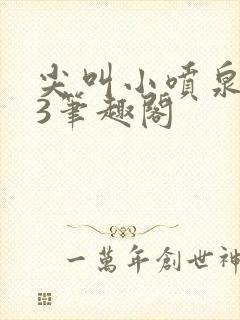 尖叫小噴泉
3筆趣閣
一萬年創世神